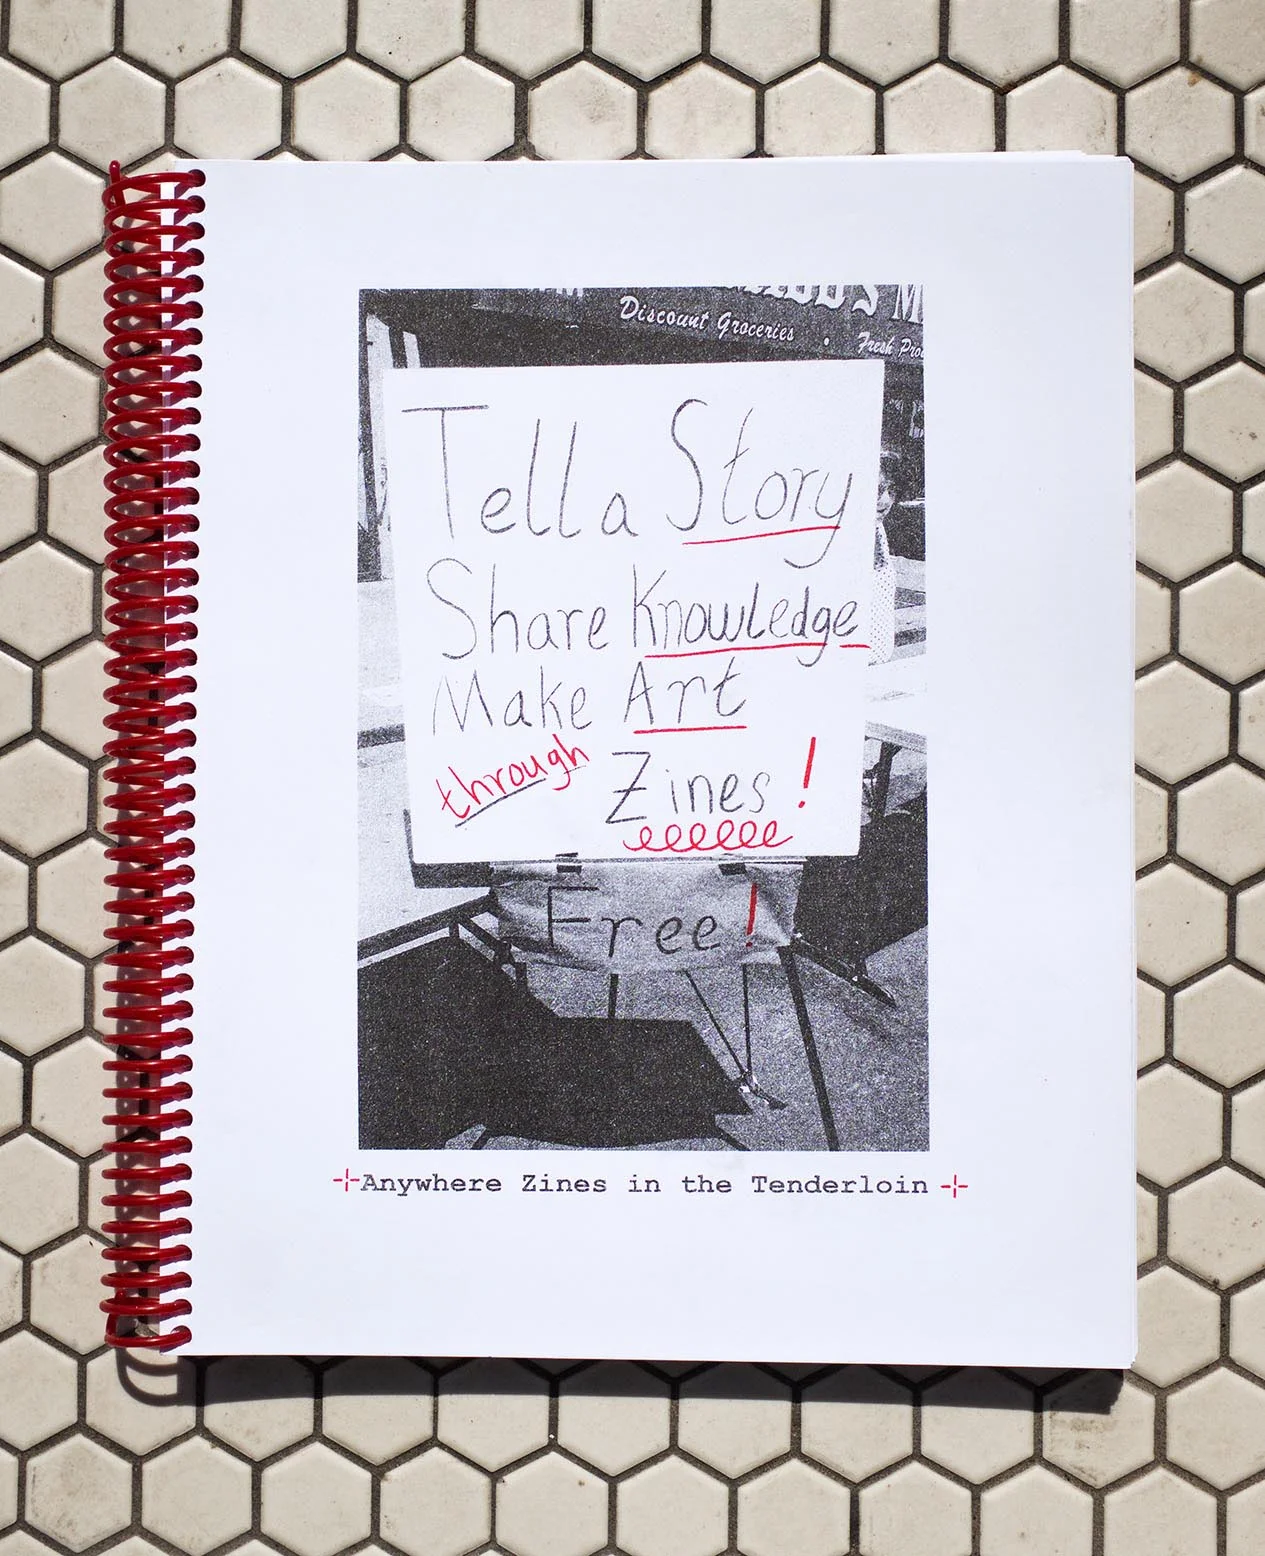 Discount Groceries
Tell a Story
Share Knowledge
Make Art
through Zines!
Free!
Anywhere Zines in the Tenderloin